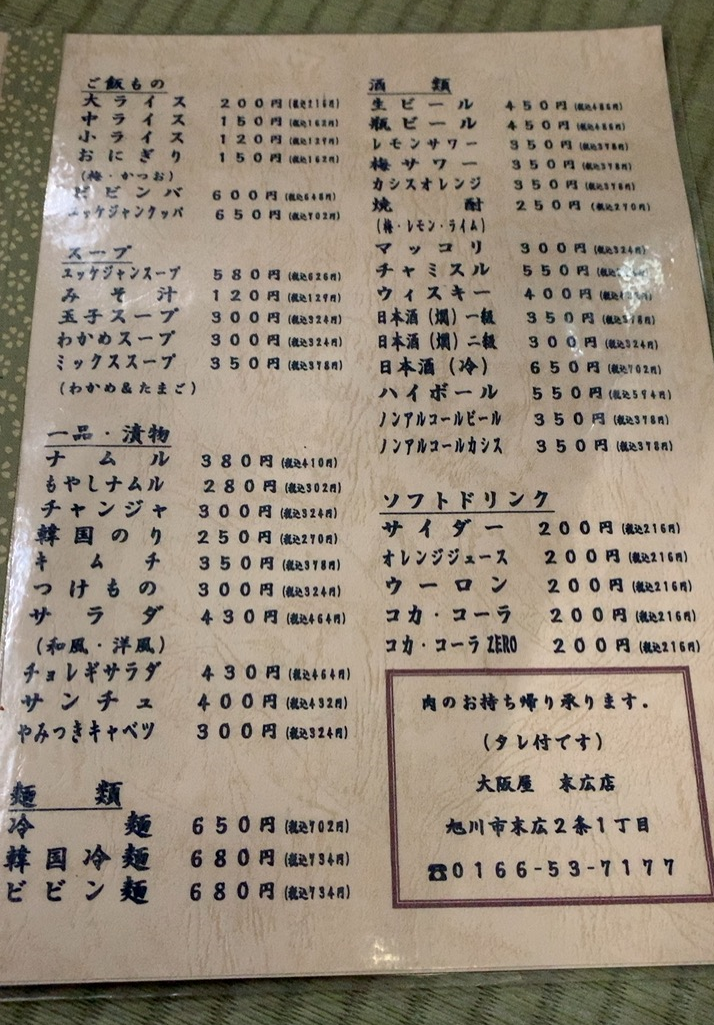 ご飯もの
大ライス 200円(税込216円)
中ライス 150円(税込162円)
小ライス 120円(税込129円)
おにぎり 150円(税込162円)
(梅・かつお)
ビビンバ 600円(税込648円)
ユッケジャンクッパ 650円(税込702円)
スープ
ユッケジャンスープ 580円(税込626円)
みそ汁 120円(税込129円)
玉子スープ 300円(税込324円)
わかめスープ 300円(税込324円)
ミックススープ 350円(税込378円)
(わかめ&たまご)
一品・漬物
ナムル 380円(税込410円)
もやしナムル 280円(税込302円)
チャンジャ 300円(税込324円)
韓国のり 250円(税込270円)
キムチ 350円(税込378円)
つけもの 300円(税込324円)
サラダ 430円(税込464円)
(和風・洋風)
チョレギサラダ 430円(税込464円)
サンチュ 400円(税込432円)
やみつきキャベツ 300円(税込324円)
麺類
冷麺 650円(税込702円)
韓国冷麺 680円(税込734円)
ビビン麺 680円(税込734円)
酒類
生ビール 450円(税込486円)
瓶ビール 450円(税込486円)
レモンサワー 350円(税込378円)
梅サワー 350円(税込378円)
カシスオレンジ 350円(税込378円)
焼酎 250円(税込270円)
(梅・レモン・ライム)
マッコリ 300円(税込324円)
チャミスル 550円
ウィスキー 400円
日本酒(燗)一級 350円(税込378円)
日本酒(燗)二級 300円(税込324円)
日本酒(冷) 650円(税込702円)
ハイボール 550円(税込594円)
ノンアルコールビール 350円(税込378円)
ノンアルコールカシス 350円(税込378円)
ソフトドリンク
サイダー 200円(税込216円)
オレンジジュース 200円(税込216円)
ウーロン 200円(税込216円)
コカ・コーラ 200円(税込216円)
コカ・コーラZERO 200円(税込216円)
肉のお持ち帰り承ります.
(タレ付です)
大阪屋 末広店
旭川市末広2条1丁目
☎0166-53-7177